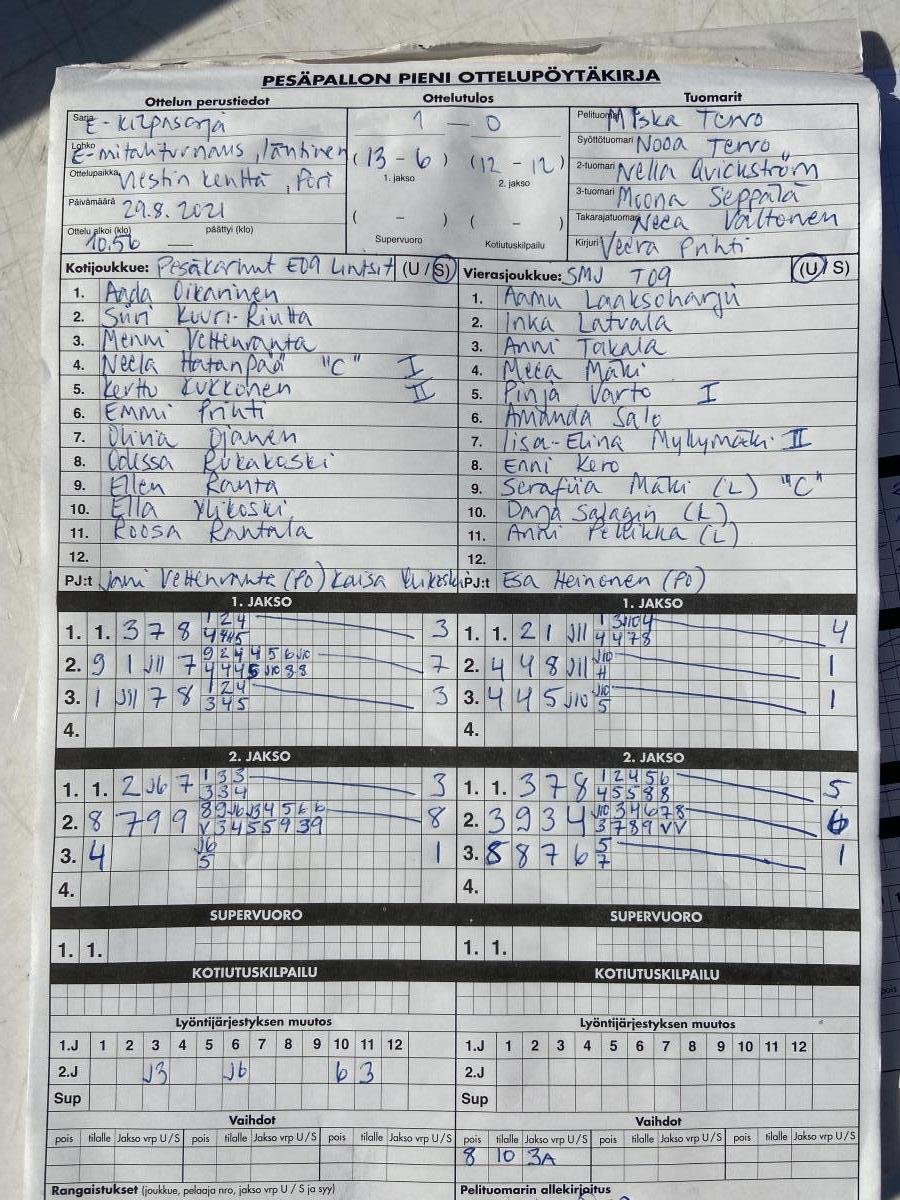 PESÄPALLON PIENI OTTELUPÖYTÄKIRJA
Ottelun perustiedot Ottelutulos Tuomarit
Sarja E-kilpasarja 1 — 0 Pelituomari Miska Tervo
Lohko E-mitaliturnaus, läntinen (13 - 6) (12 - 12) Syöttötuomari Nooa Tervo
1. jakso 2. jakso
Ottelupaikka Viestin kenttä, Pori 2-tuomari Nella Qvickström
Päivämäärä 29.8.2021 ( - ) ( - ) 3-tuomari Moona Seppälä
Takarajatuomari Neea Valtonen
Ottelu alkoi (klo) 10.56 — päättyi (klo) Supervuoro Kotiutuskilpailu Kirjuri Veera Prihti
Kotijoukkue: Pesäkarhut E09 Lintsit (U / S) Vierasjoukkue: SMJ T09 (U / S)
1. Aada Oikarinen 1. Aamu Laaksoharju
2. Siiri Kuuri-Riutta 2. Inka Latvala
3. Menni Vettenranta 3. Anni Takala
4. Neela Hatanpää "C" I 4. Meea Mäki
5. Kerttu Kukkonen II 5. Pinja Varto I
6. Emmi Prihti 6. Amanda Salo
7. Olivia Ojanen 7. Iisa-Elina Myllymäki II
8. Odessa Rukakoski 8. Enni Kero
9. Ellen Ranta 9. Serafiia Mäki (L) "C"
10. Ella Ylikoski 10. Darja Salagin (L)
11. Roosa Rantala 11. Anni Pellikka (L)
12. 12.
PJ:t Jani Vettenranta (PO) Kaisa Ylikoski PJ:t Esa Heinonen (PO)
1. JAKSO 1. JAKSO
1. 1. 3 7 8 1 2 4 3 1. 1. 2 1 J11 1 3 J10 4 4
4 4 4 5 4 4 7 8
2. 9 1 J11 7 9 2 4 4 5 6 J10 7 2. 4 4 8 J11 J10 1
4 4 4 5 J10 8 8 4
3. 1 J11 7 8 1 2 4 3 3. 4 4 5 J10 J10 1
3 4 5 5
4. 4.
2. JAKSO 2. JAKSO
1. 1. 2 J6 7 1 3 3 3 1. 1. 3 7 8 1 2 4 5 6 5
3 3 4 4 5 5 8 8
2. 8 7 9 9 8 9 J6 J3 4 5 6 6 8 2. 3 9 3 4 J10 3 4 6 7 8 6
V 3 4 5 5 9 3 9 3 7 8 9 V V
3. 4 J6 1 3. 8 8 7 6 5 1
5 7
4. 4.
SUPERVUORO SUPERVUORO
1. 1. 1. 1.
KOTIUTUSKILPAILU KOTIUTUSKILPAILU
Lyöntijärjestyksen muutos Lyöntijärjestyksen muutos
1.J 1 2 3 4 5 6 7 8 9 10 11 12 1.J 1 2 3 4 5 6 7 8 9 10 11 12
2.J J3 J6 6 3 2.J
Sup Sup
Vaihdot Vaihdot
pois tilalle Jakso vrp U / S pois tilalle Jakso vrp U / S pois tilalle Jakso vrp U / S pois tilalle Jakso vrp U / S pois tilalle Jakso vrp U / S pois tilalle Jakso vrp U / S
8 10 3A
Rangaistukset (joukkue, pelaaja nro, jakso vrp U / S ja syy) Pelituomarin allekirjoitus